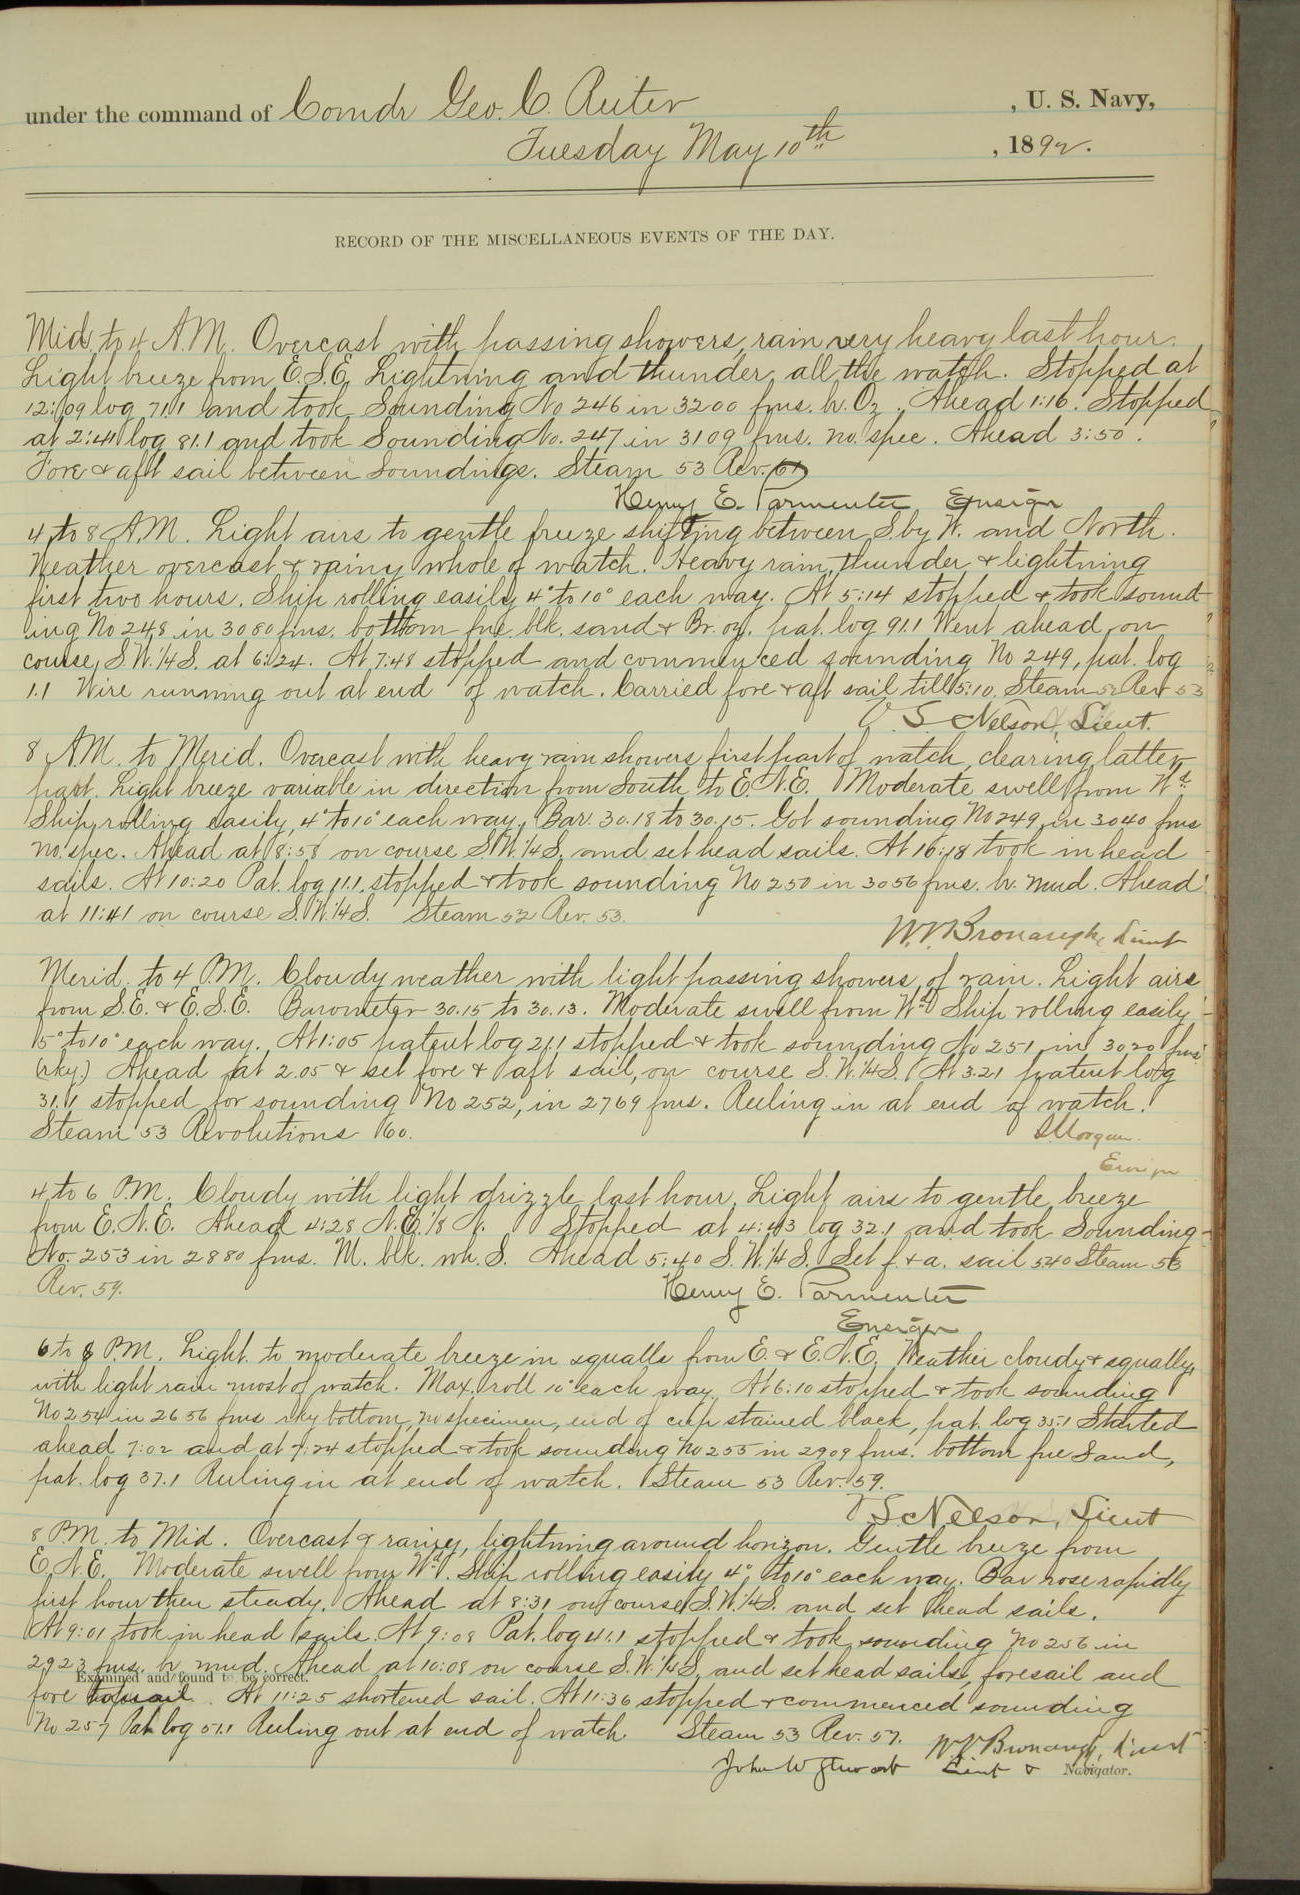 under the command of Comdr Geo. C. Reiter , U. S. Navy,
Tuesday May 10th , 1892.
RECORD OF THE MISCELLANEOUS EVENTS OF THE DAY.
Mid. to 4 A.M. Overcast with passing showers, rain very heavy last hour.
Light breeze from E.S.E. Lightning and thunder all the watch. Stopped at
12:09 log 71.1 and took Sounding No 246 in 3200 fms. br. Oz. Ahead 1:16. Stopped
at 2:41 log 81.1 and took Sounding No. 247 in 3109 fms. no. spec. Ahead 3:50.
Fore & aft sail between Soundings. Steam 53 Rev. 61
Henry E. Parmenter Ensign
4 to 8 A.M. Light airs to gentle breeze shifting between S. by W. and North.
Weather overcast & rainy whole of watch. Heavy rain, thunder & lightning
first two hours. Ship rolling easily 4° to 10° each way. At 5:14 stopped & took sound-
ing No 248 in 3080 fms. bottom fne. blk. sand & Br. oz. pat. log 91.1 Went ahead on
course S.W.1/4S. at 6:24. At 7:48 stopped and commenced sounding No 249, pat. log
1.1 Wire running out at end of watch. Carried fore & aft sail till 5:10. Steam 52 Rev 53
V. S. Nelson, Lieut.
8 A.M. to Merid. Overcast with heavy rain showers first part of watch, clearing latter
part. Light breeze variable in direction from South to E.N.E. Moderate swell from Wd.
Ship rolling easily, 4° to 10° each way. Bar. 30.18 to 30.15. Got sounding No 249 in 3040 fms
no. spec. Ahead at 8:58 on course S.W.1/4S. and set head sails. At 10:18 took in head
sails. At 10:20 Pat. log 11.1, stopped & took sounding No 250 in 3056 fms. br. mud. Ahead
at 11:41 on course S.W.1/4S. Steam 52 Rev. 53.
W. V. Bronaugh, Lieut
Merid. to 4 P.M. Cloudy weather with light passing showers of rain. Light airs
from S.E. & E.S.E. Barometer 30.15 to 30.13. Moderate swell from Wd Ship rolling easily
5° to 10° each way. At 1:05 patent log 21.1 stopped & took sounding No 251 in 3020 fms
(rky.) Ahead at 2.05 & set fore & aft sail, on course S.W.1/4S. At 3.21 patent log
31.1 stopped for sounding No 252, in 2769 fms. Reeling in at end of watch.
Steam 53 Revolutions 60.
Morgan.
Ensign
4 to 6 P.M. Cloudy with light drizzle last hour. Light airs to gentle breeze
from E.N.E. Ahead 4:28 N.E.1/8 N. Stopped at 4:43 log 32.1 and took Sounding
No. 253 in 2880 fms. M. blk. wh. S. Ahead 5:40 S.W.1/4S. Set f. & a. sail 5.40 Steam 53
Rev. 59.
Henry E. Parmenter
Ensign
6 to 8 P.M. Light to moderate breeze in squalls from E. & E.N.E. Weather cloudy & squally,
with light rain most of watch. Max. roll 10° each way. At 6:10 stopped & took sounding
No 254 in 2656 fms rky bottom, no specimen, end of cup stained black, pat. log 35.1 Started
ahead 7:02 and at 7:24 stopped & took sounding No 255 in 2909 fms. bottom fne Sand,
pat. log 37.1 Reeling in at end of watch. Steam 53 Rev. 59.
V. S. Nelson, Lieut
8 P.M. to Mid. Overcast & rainy, lightning around horizon. Gentle breeze from
E.N.E. Moderate swell from Wd. Ship rolling easily 4° to 10° each way. Bar rose rapidly
first hour then steady. Ahead at 8:31 on course S.W.1/4S. and set head sails.
At 9:01 took in head sails. At 9:08 Pat. log 41.1 stopped & took sounding No 256 in
2923 fms. br mud. Ahead at 10:08 on course S.W.1/4S, and set head sails, foresail and
Examined and found to be correct.
fore topsail. At 11:25 shortened sail. At 11:36 stopped & commenced sounding
No 257 Pat. log 51.1 Reeling out at end of watch. Steam 53 Rev. 57.
W V Bronaugh, Lieut
John W Stewart Lieut & Navigator.